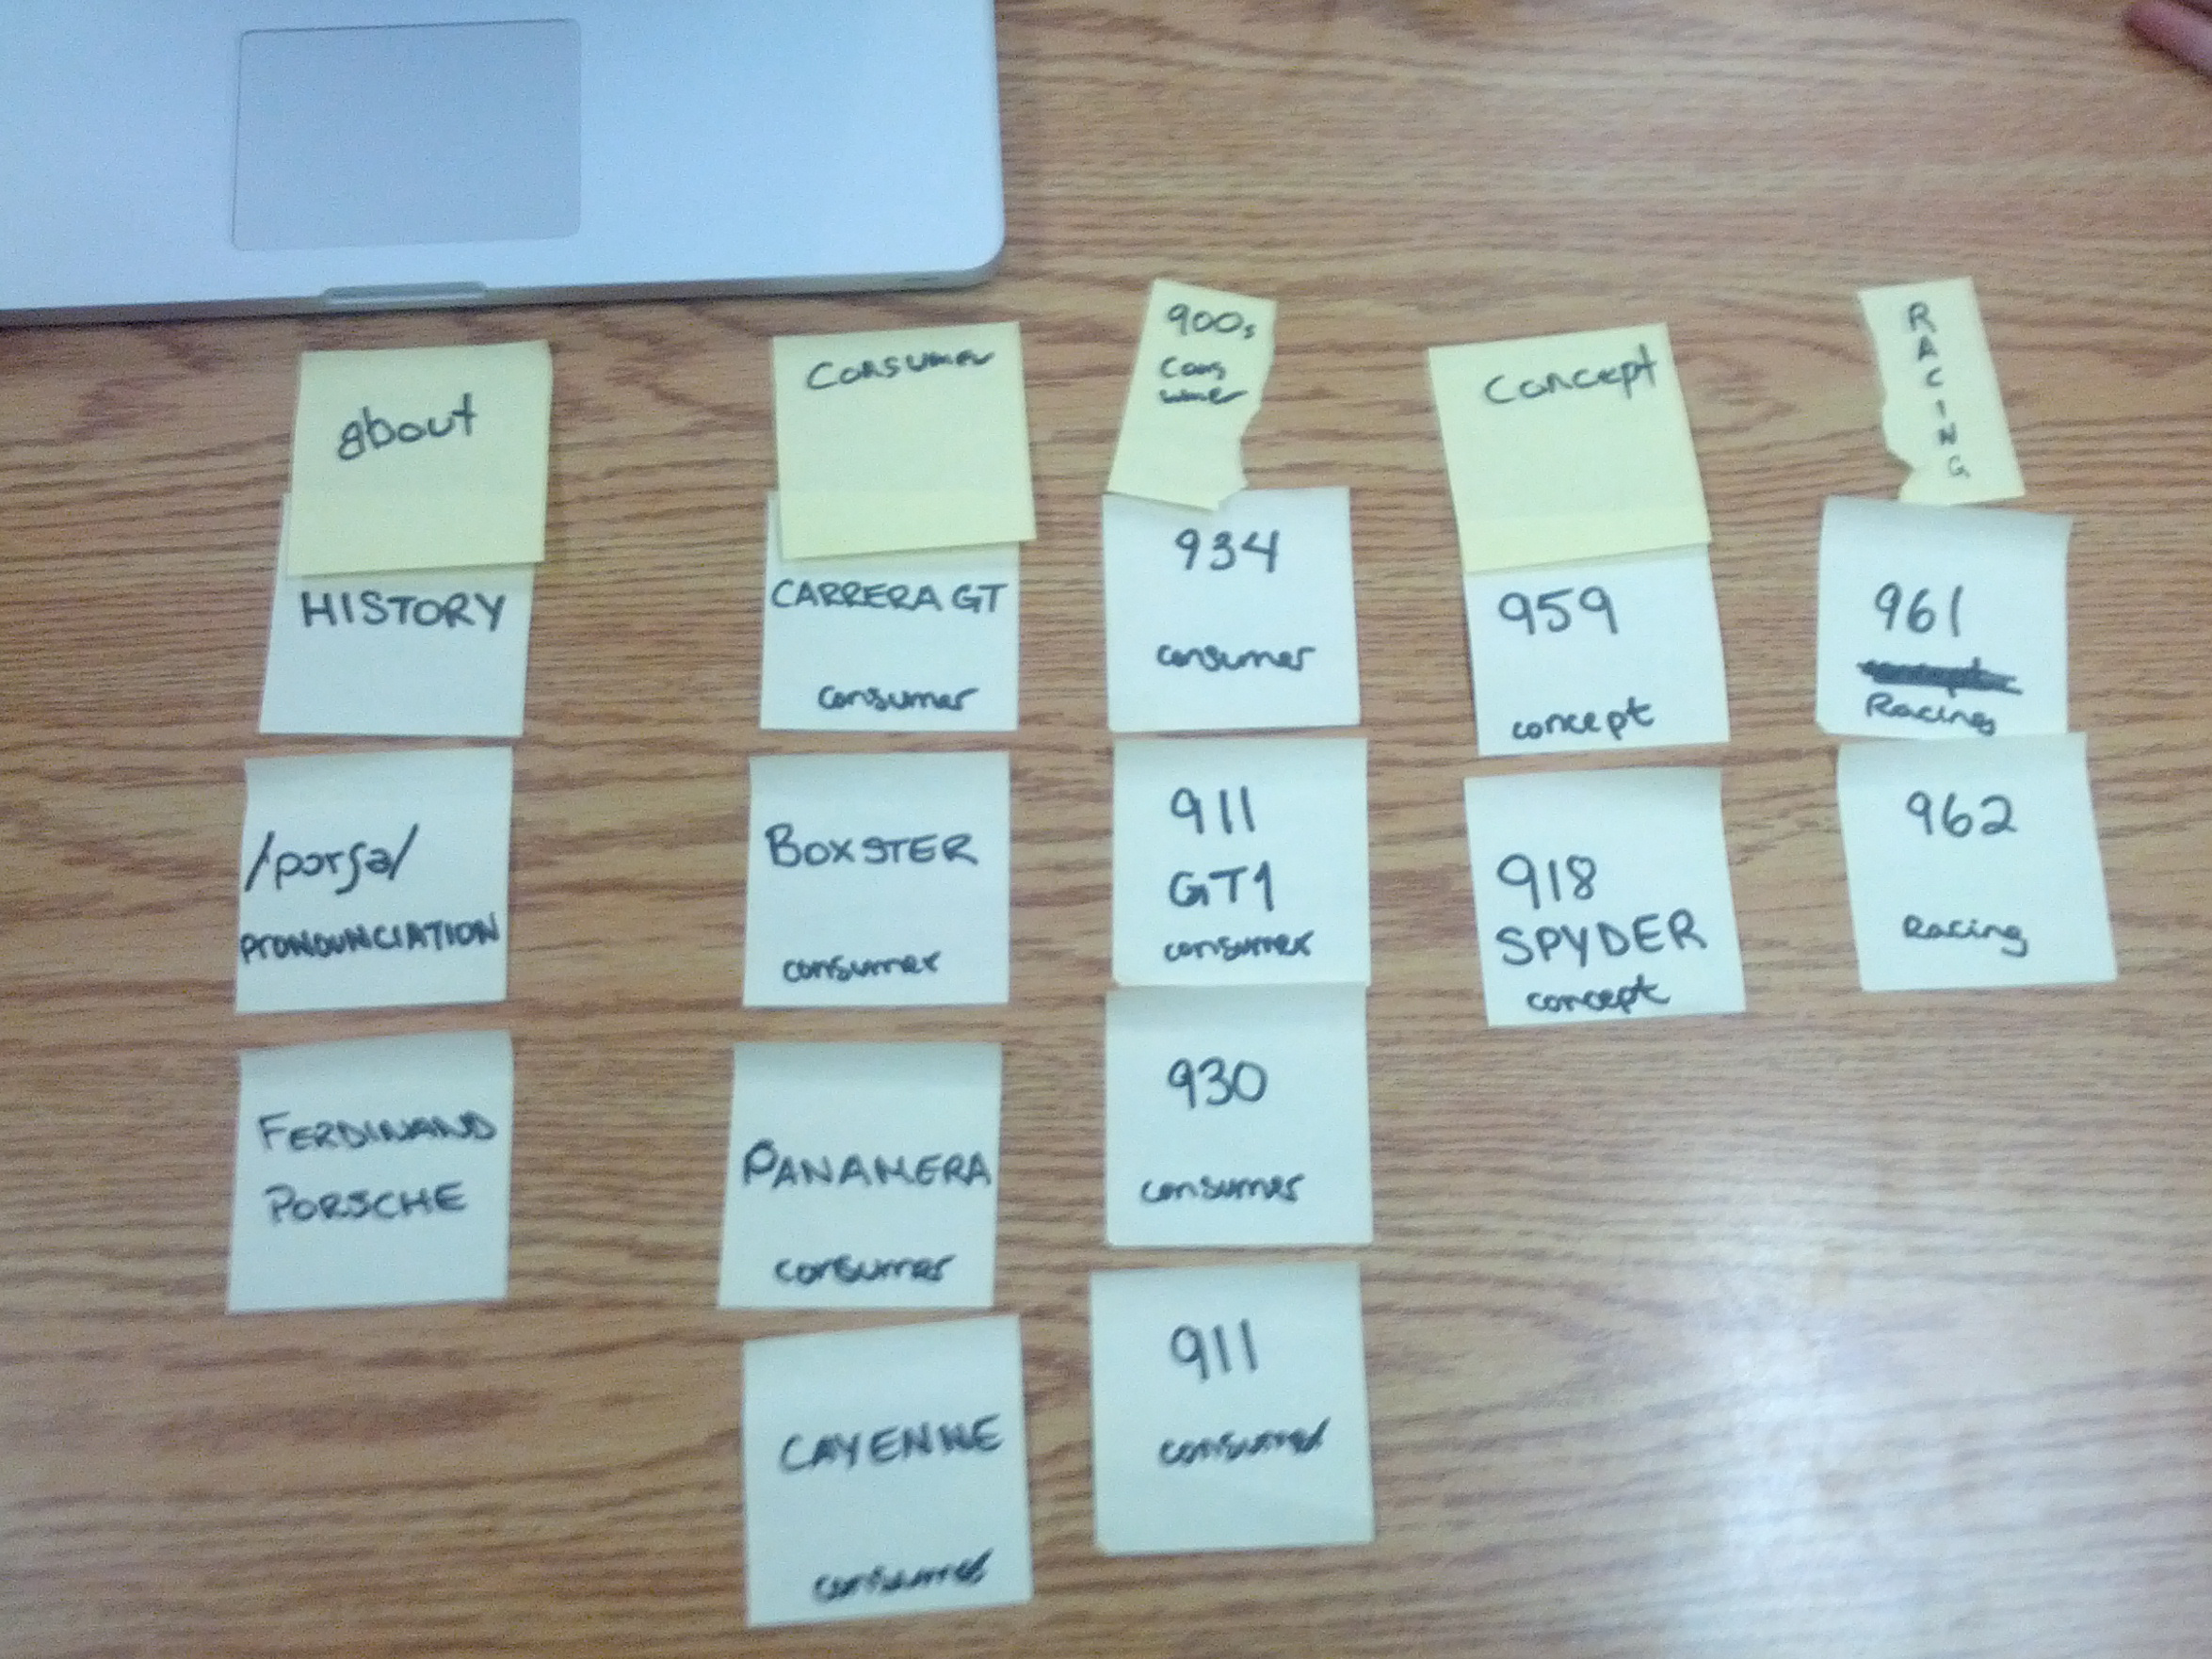 about
HISTORY
/porʃə/
PRONOUNCIATION
FERDINAND
PORSCHE
Consumer
CARRERA GT
consumer
BOXSTER
consumer
PANAMERA
consumer
CAYENNE
consumer
900s
Cons
umer
934
consumer
911
GT1
consumer
930
consumer
911
consumer
Concept
959
concept
918
SPYDER
concept
RACING
961
Racing
962
Racing